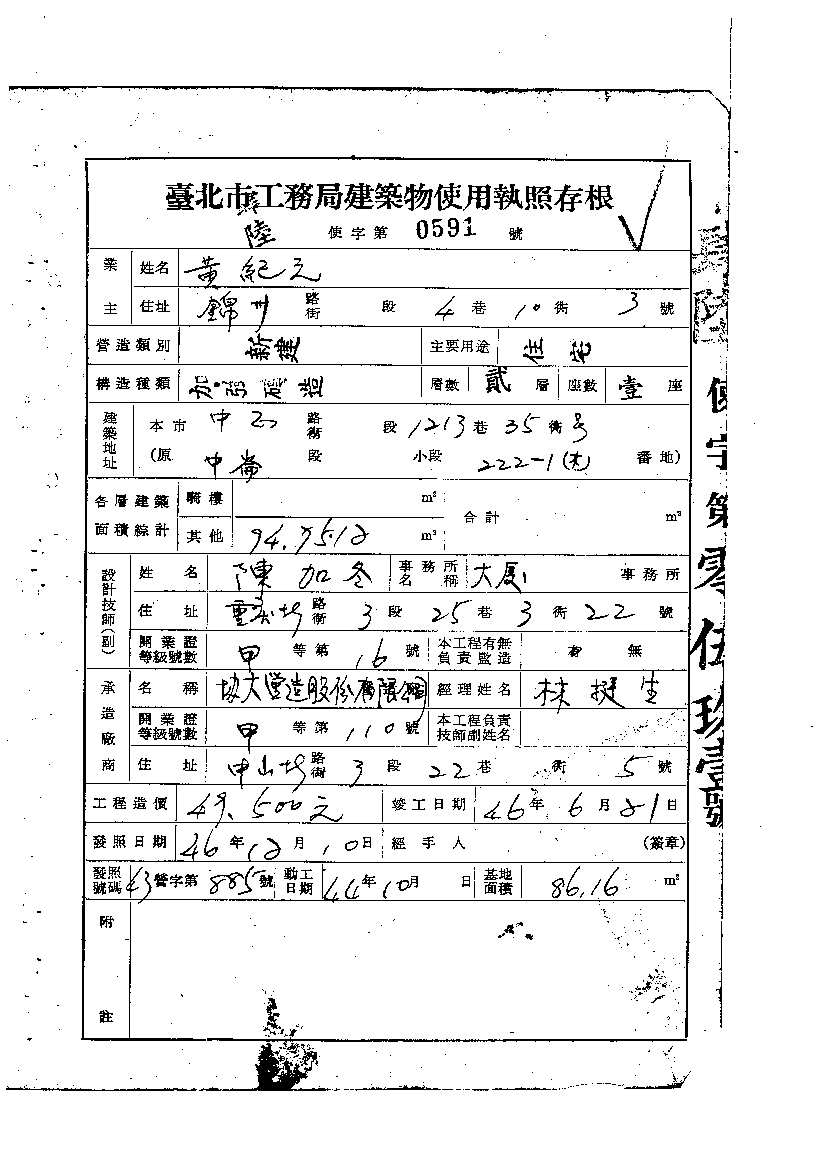 臺北市工務局建築物使用執照存根
肆陸 使字第 0591 號
業主 姓名 黃紀元
住址 錦州 路街 段 4 巷 10 衖 3 號
營造類別 新建 主要用途 住宅
構造種類 加強磚造 層數 貳 層 座數 壹 座
建築地址 本市 中正 路街 段 1213 巷 35 衖 号
(原 中崙 段 小段 222-1(木) 番地)
各層建築面積綜計 騎樓 m² 合計 m²
其他 94.7512 m²
設計技師(副) 姓名 陳加冬 事務所名稱 大厦 事務所
住址 重慶北 路街 3 段 25 巷 3 衖 22 號
開業證等級號數 甲 等第 16 號 本工程有無負責監造 有 無
承造廠商 名稱 協大營造股份有限公司 經理姓名 林挺生
開業證等級號數 甲 等第 110 號 本工程負責技師副姓名
住址 中山北 路街 3 段 22 巷 衖 5 號
工程造價 49,500元 竣工日期 46年 6月 21日
發照日期 46年 12月 10日 經手人 (簽章)
發照號碼 43營字第 885號 動工日期 44年10月 日 基地面積 86.16 m²
附註
肆陸使字第零伍玖壹號